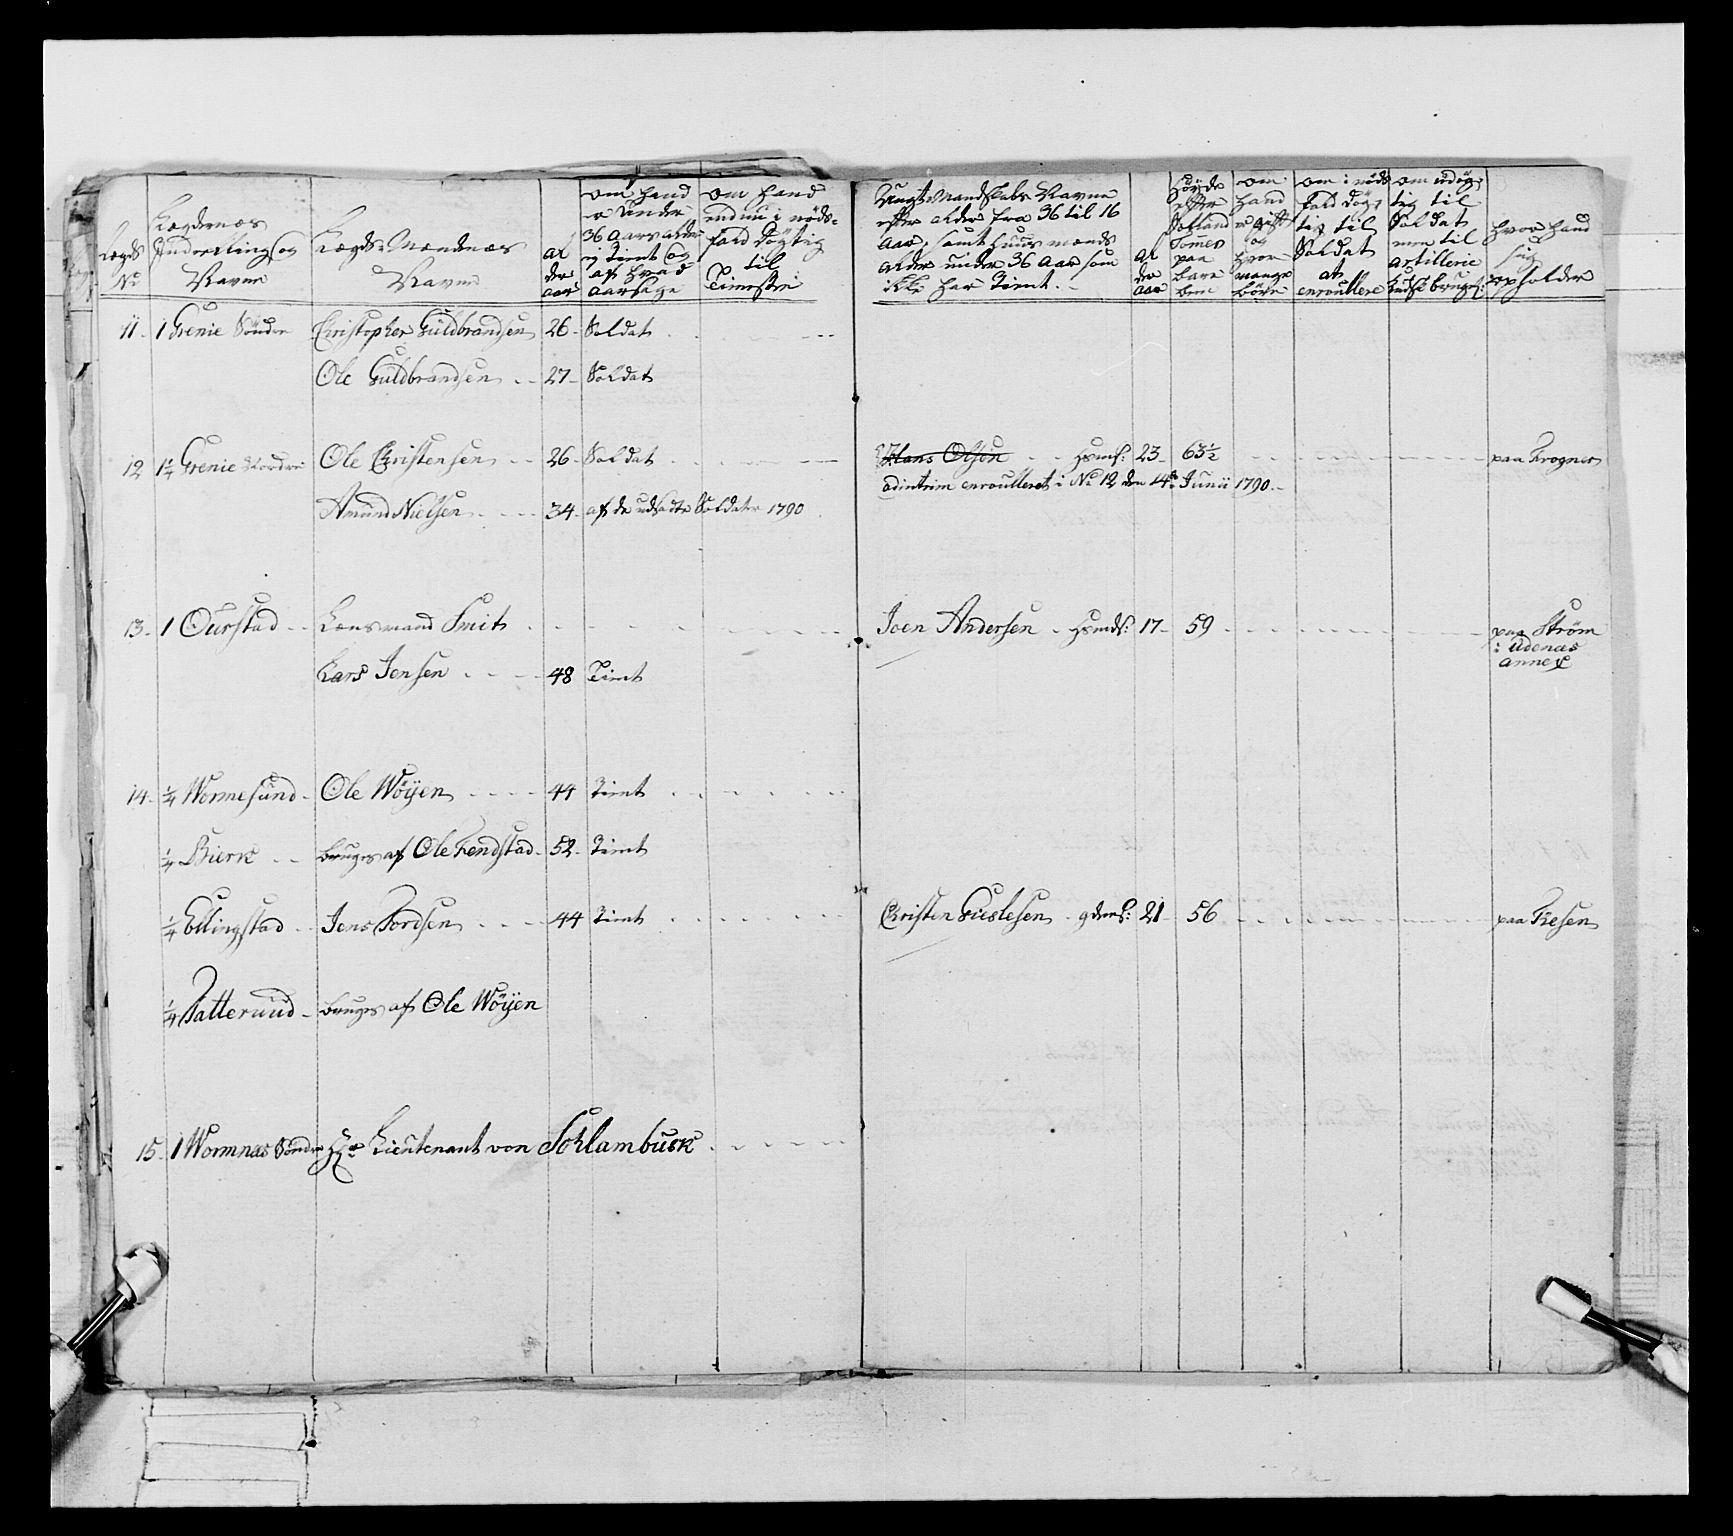 Lægds No
Lægdernes Inddeeling og Navne
Lægds-Mændenes Navne
Al der aar
om hand er under 36 Aars alder ej tient og af hvad aarsage
om hand endnu i nöds-fald dögtig til Tieneste
Ungt Mandskabs Navne efter alder fra 36 til 16 Aar, samt huusmænds alder under 36 Aar som ikke har Tient.
Al der aar
Höyde efter Sælland Tomer paa bare been
om hand er gift og hvor mange börn
om i nöds fald dög-tig til Soldat at enroullere
om udög-tig til Soldat men til artillerie kudsk bruges
hvor hand sig opholder
11. 1 Grenie Söndre Christopher Guldbrandsen 26 Soldat
Ole Guldbrandsen 27 Soldat
12 1¼ Grenie Nordre Ole Christensen 26 Soldat Hans Olsön Hsmds: 23 63½ paa Frogner
adintrim enroulleret i No 12 den 14de Junii 1790.
Amund Nielsen 34 af de udsadte Soldater 1790
13. 1 Ourstad Lensmand Smit Joen Andersen Hsmds: 17 59 paa Ström
i Udenæs
annex
Lars Jensen 48 Tient
14. ¼ Wormesund Ole Wöÿen 44 Tient
¼ Bierk bruges af Ole Kendstad 52 Tient
¼ Ellingstad Jens Tordsen 44 Tient Christen Gieslesen gdms: 21 56 paa Kesen
¼ Tatterud bruges af Ole Wöÿen
15. 1 Wormnæs Söndre Hr Lieutenant von Schlambusk